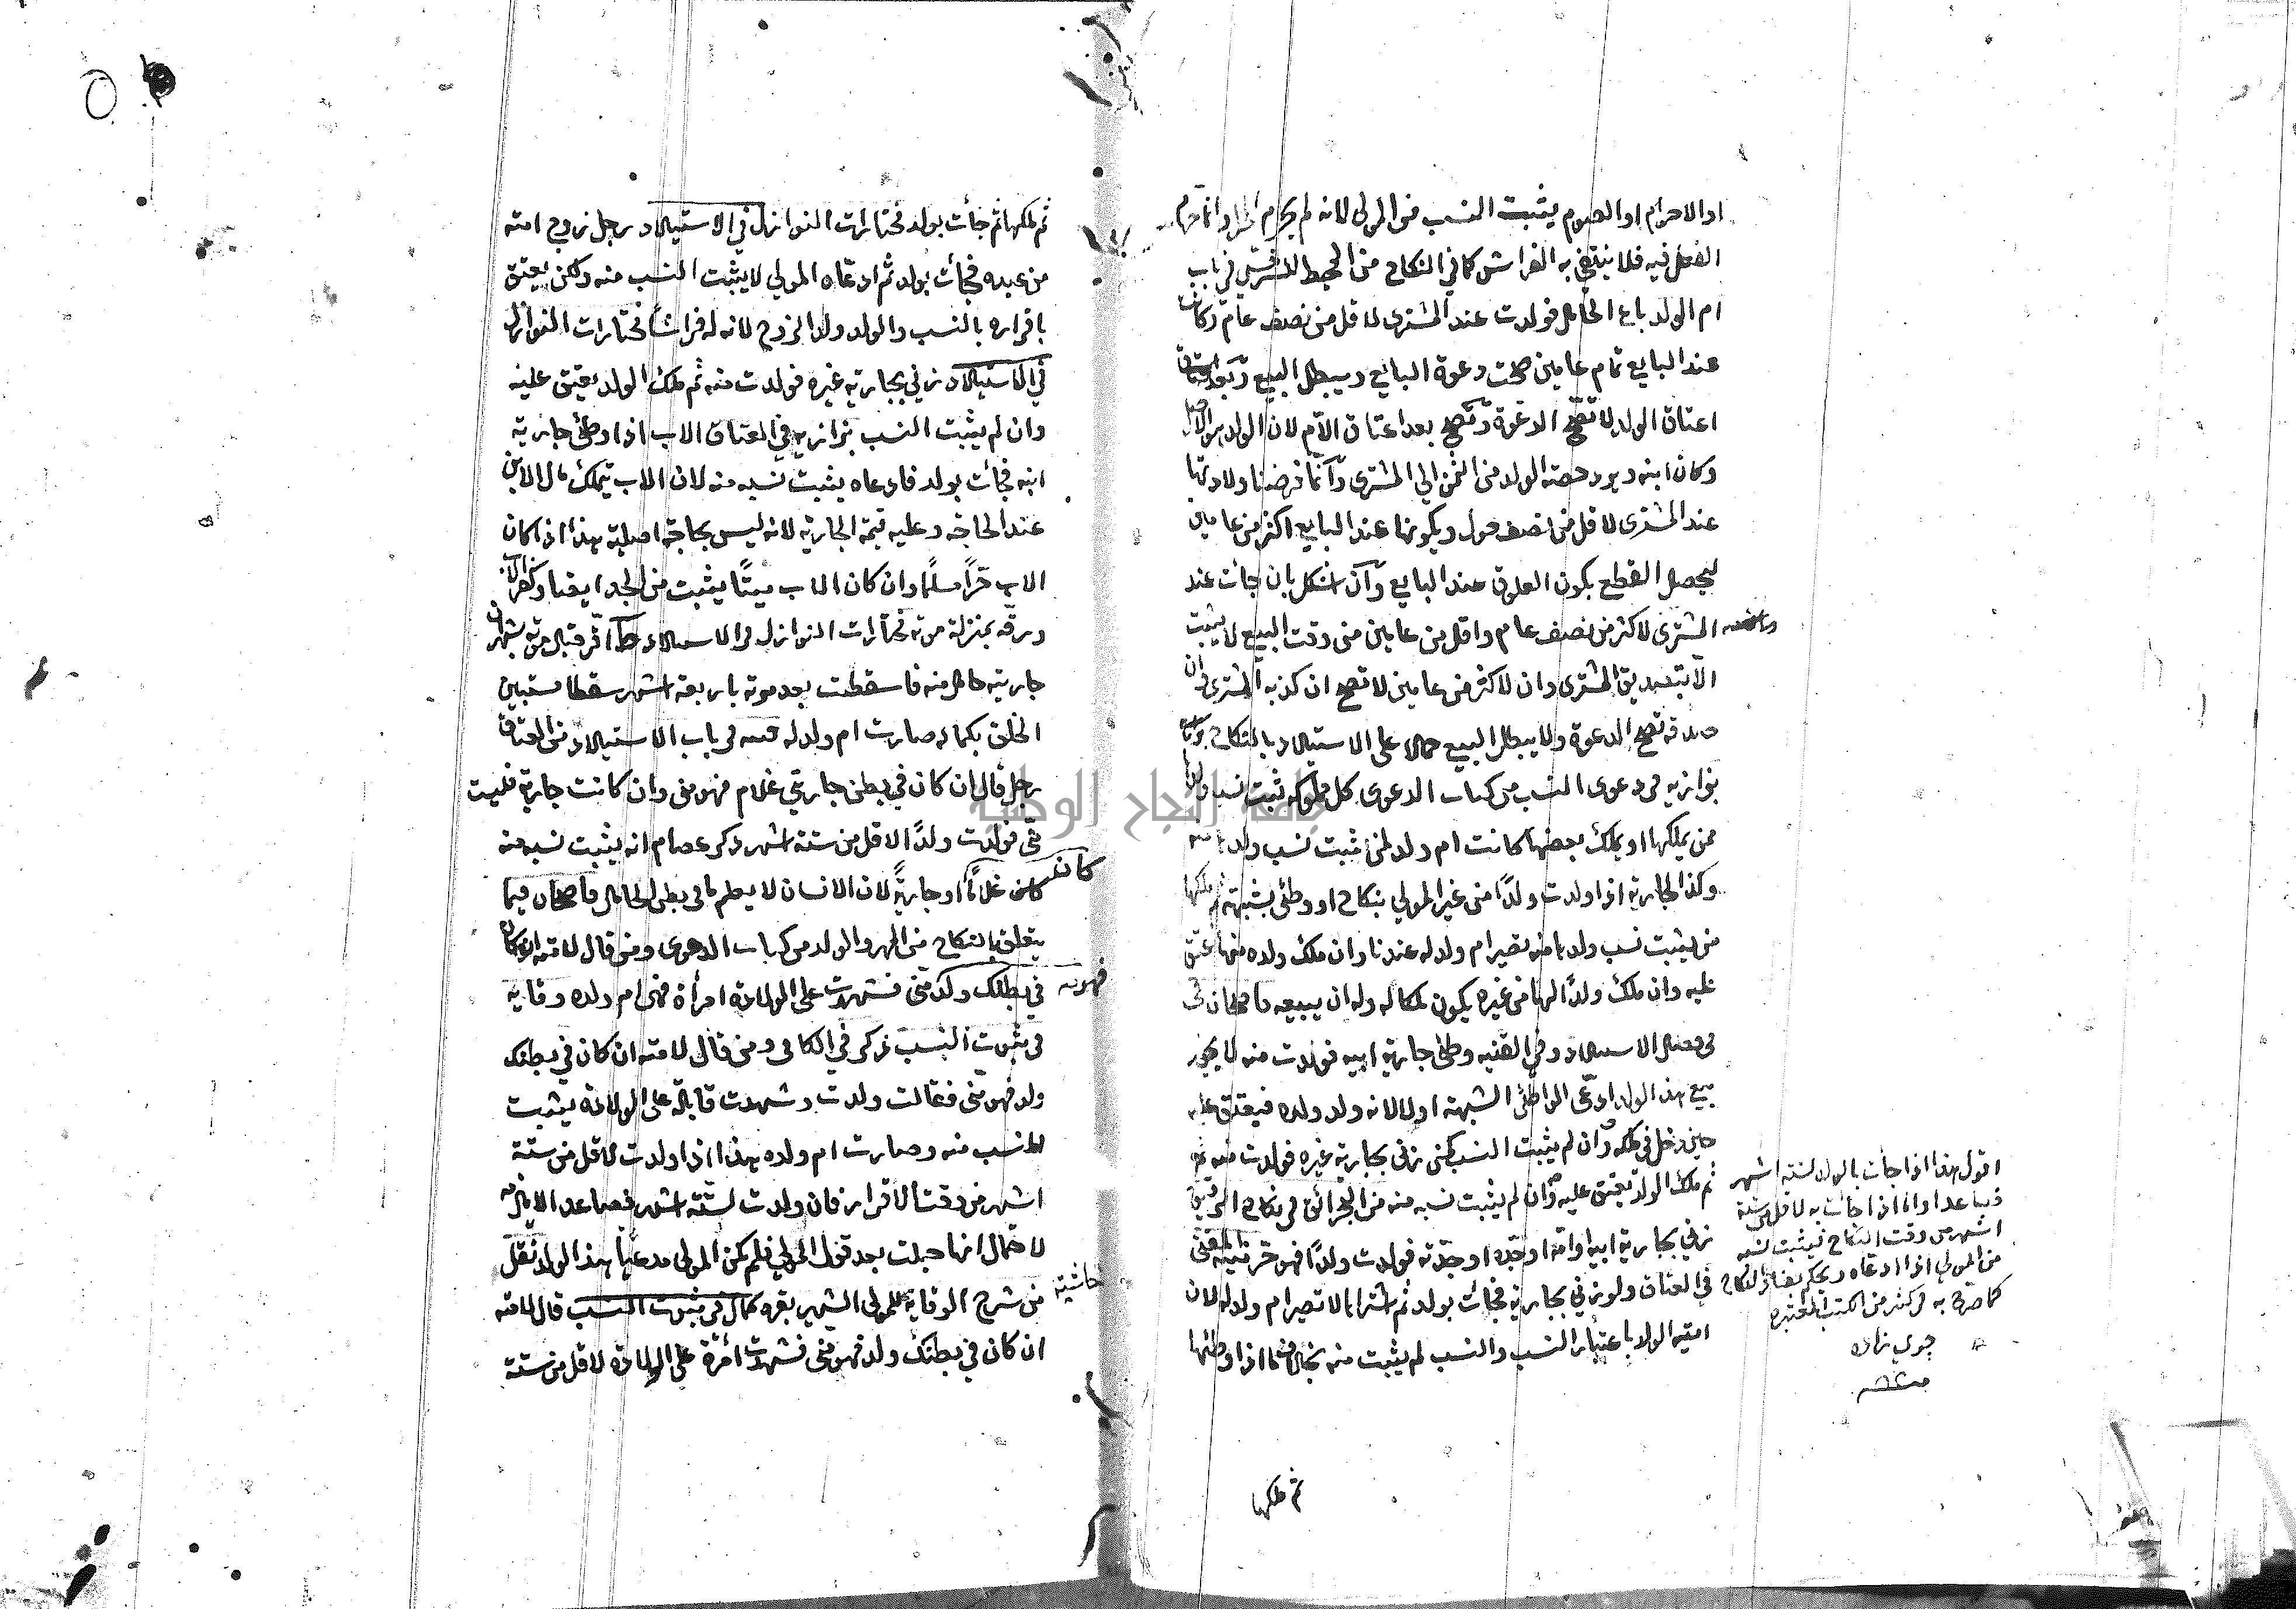 او الاحرام او الصوم يثبت النسب من المولى لانه لم يحرم الحل وانما حرم
الفعل فيه فلا ينتفي به الفراش كما في النكاح من المحيط للسرخسي في باب
ام الولد باع الحامل فولدت عند المشترى لاقل من نصف عام وكان
عند البايع تمام عامين صحت دعوة البايع ويبطل البيع وبعد
اعتاق الولد لا تصح الدعوة وتصح بعد اعتاق الام لان الولد هو الاصل
وكان ابنه ويرد حصة الولد من الثمن الى المشترى وانما فرضنا ولادتها
عند المشترى لاقل من نصف حول وبكونها عند البايع اكثر من عامين
ليحصل القطع بكون العلوق عند البايع وان اشكل بان جائت عند
المشترى لاكثر من نصف عام واقل من عامين من وقت البيع لا يثبت
الا بتصديق المشترى وان لاكثر من عامين لا تصح ان كذبه المشترى وان
صدقه تصح الدعوة ولا يبطل البيع حملا على الاستيلاد بالنكاح
بزازيه فى دعوى النسب من كتاب الدعوى كل مملوكة ثبت نسب ولدها
ممن يملكها او يملك بعضها كانت ام ولد لمن ثبت نسب ولدها منه
وكذا الجارية اذا ولدت ولدًا من غير المولي بنكاح او وطئ بشبهة ثم ملكها
من يثبت نسب ولدها منه تصير ام ولد له عندنا وان ملك ولده منها عتق
عليه وان ملك ولدًا لها من غيره يكون ملكا له وله ان يبيعه قاضيخان
فى فصل الاستيلاد وفي القنيه وطئ جارية ابيه فولدت منه لا يجوز
بيع هذا الولد ادعى الواطئ الشبهة اولا لانه ولد ولده فيعتق عليه
حين دخل في ملكه وان لم يثبت النسب كمن زنى بجارية غيره فولدت منه
ثم ملك الولد يعتق عليه وان لم يثبت نسبه منه من البحر الرائق فى نكاح الرقيق
زني بجارية ابيه او امه او جده او جدته فولدت ولدًا فهو حر قنيه
في العتاق ولو زني بجارية فجائت بولد ثم اشتراها لا تصير ام ولد له لان
امية الولد باعتبار النسب والنسب لم يثبت منه بخلاف ما اذا وطئها
ثم ملكها
اقول هذا اذا جأت بالولد لستة اشهر
فصاعدا واما اذا جائت به لاقل من ستة
اشهر من وقت النكاح فيثبت نسبه
من المولي اذا ادعاه ويحكم بفساد النكاح
كما صرح به في كثير من الكتب المعتبره
جوي زاده
ثم ملكها ثم جأت بولد مختارات النوازل في الاستيلاد رجل زوج امته
من عبده فجأت بولد ثم ادعاه المولي لا يثبت النسب منه ولكن يعتق
باقراره بالنسب والولد ولد الزوج لانه له فراشًا مختارات النوازل
في الاستيلاد زني بجارية غيره فولدت منه ثم ملك الولد يعتق عليه
وان لم يثبت النسب بزازيه في العتاق الاب اذا وطئ جارية
ابنه فجأت بولد فادعاه يثبت نسبه منه لان الاب يتملك مال الابن
عند الحاجة وعليه قيمة الجارية لانه ليس بحاجة اصلية هذا اذا كان
الاب حرًا مسلمًا وان كان الاب ميتًا يثبت من الجد ايضا وكفر الاب
ورقه بمنزلة موته مختارات النوازل فى الاستيلاد اقر قبل موته بشهر ان
جاريته حامل منه فاسقطت بعد موته باربعة اشهر سقطا مستبين
الخلق بكماله صارت ام ولد له قنيه فى باب الاستيلاد من العتاق
رجل قال ان كان في بطن جاريتي غلام فهو مني وان كانت جارية فليست
مني فولدت ولدًا لاقل من ستة اشهر ذكر عصام انه يثبت نسبه منه
كان
كان غلامًا او جاريةً لان الانسان لا يعلم ما فى بطن الحامل قاضيخان فيما
يتعلق بالنكاح من المهر والولد من كتاب الدعوى ومن قال لامته ان كان
فهو
في بطنك ولد مني فشهدت على الولادة امرأة فهى ام ولده وقايه
فى ثبوت النسب ذكر في الكافى ومن قال لامته ان كان في بطنك
ولد فهو مني فقالت ولدت وشهدت قابلة على الولادة يثبت
النسب منه وصارت ام ولده هذا اذا ولدت لاقل من ستة
اشهر من وقت الاقرار فان ولدت لستة اشهر فصاعدا لا يثبت
لاحتمال انها حبلت بعد قول المولي فلم يكن المولى مدعيًا هذا الولد نقل
حاشية
من شرح الوقاية للمولى الشهير بقره كمال فى ثبوت النسب قال لامته
ان كان في بطنك ولد فهو مني فشهدت امرأة على الولادة لاقل من ستة
جامعة النجاح الوطنية